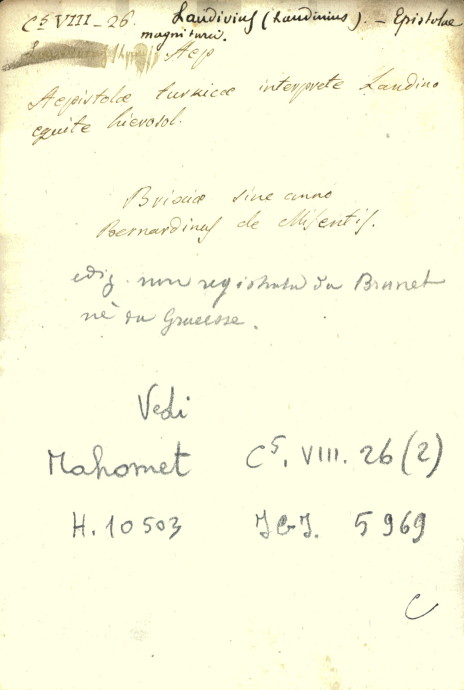 C5 VIII-26. Laudivius (Laudinius). - Epistolae
magniturci.
Aep
Aepistolæ turkicæ interprete Landino
equite hierosol.
Brixiæ sine anno
Bernardinus de Misentis.
ediz. non registrata da Brunet
nè da Graesse.
Vedi
Mahomet C5. VIII. 26 (2)
H. 10503 IGI. 5969
C